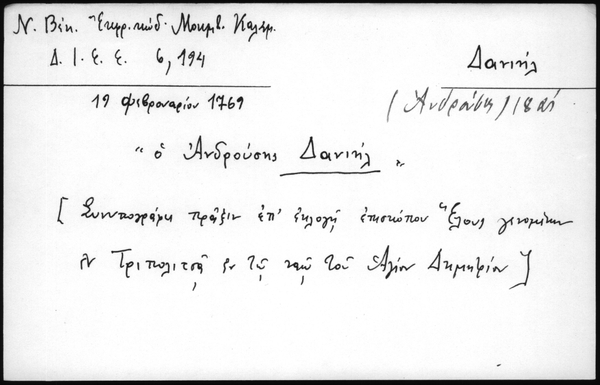 Ν. Βέη. Ἔκφρ. κώδ. Μονεμβ. Καλαμ.
Δ. Ι. Ε. Ε. 6, 194
Δανιήλ
19 Φεβρουαρίου 1769
(Ἀνδρούσης) 18 αἰ
"ὁ Ἀνδρούσης Δανιήλ"
[Συνυπογράφει πρᾶξιν ἐπ' ἐκλογῇ ἐπισκόπου Ἕλους γενομένην
ἐν Τριπολιτσᾷ ἐν τῷ ναῷ τοῦ Ἁγίου Δημητρίου]